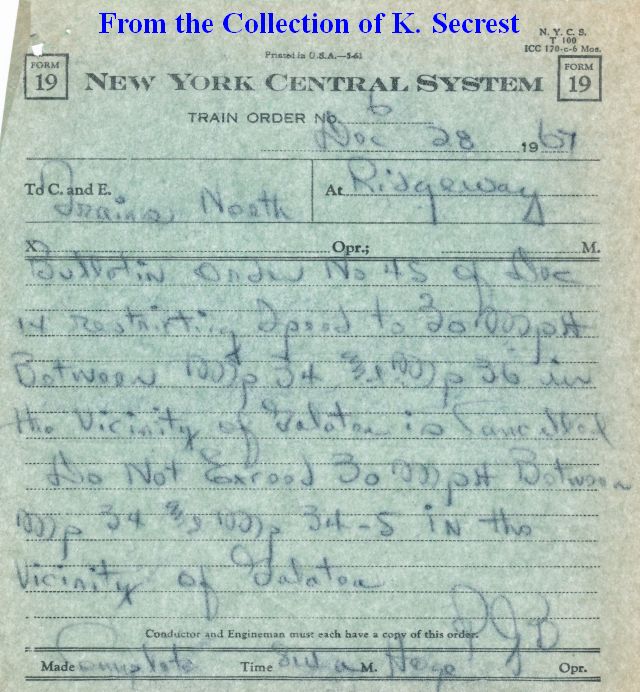 From the Collection of K. Secrest
N. Y. C. S.
T 100
ICC 170-c-6 Mos.
Printed in U.S.A.—5-61
FORM
19
NEW YORK CENTRAL SYSTEM
FORM
19
TRAIN ORDER No. 6
Dec 28 1967
To C. and E. Trains North
At Ridgeway
X Opr.; M.
Bulletin Order No 45 of Dec
14 restricting Speed to 20 MpH
Between Mp 34 and Mp 36 in
the Vicinity of is Cancelled
Do Not Exceed 30 MpH Between
Mp 34 and Mp 34-5 in the
Vicinity of
RJB
Conductor and Engineman must each have a copy of this order.
Made Complete Time M. Opr.